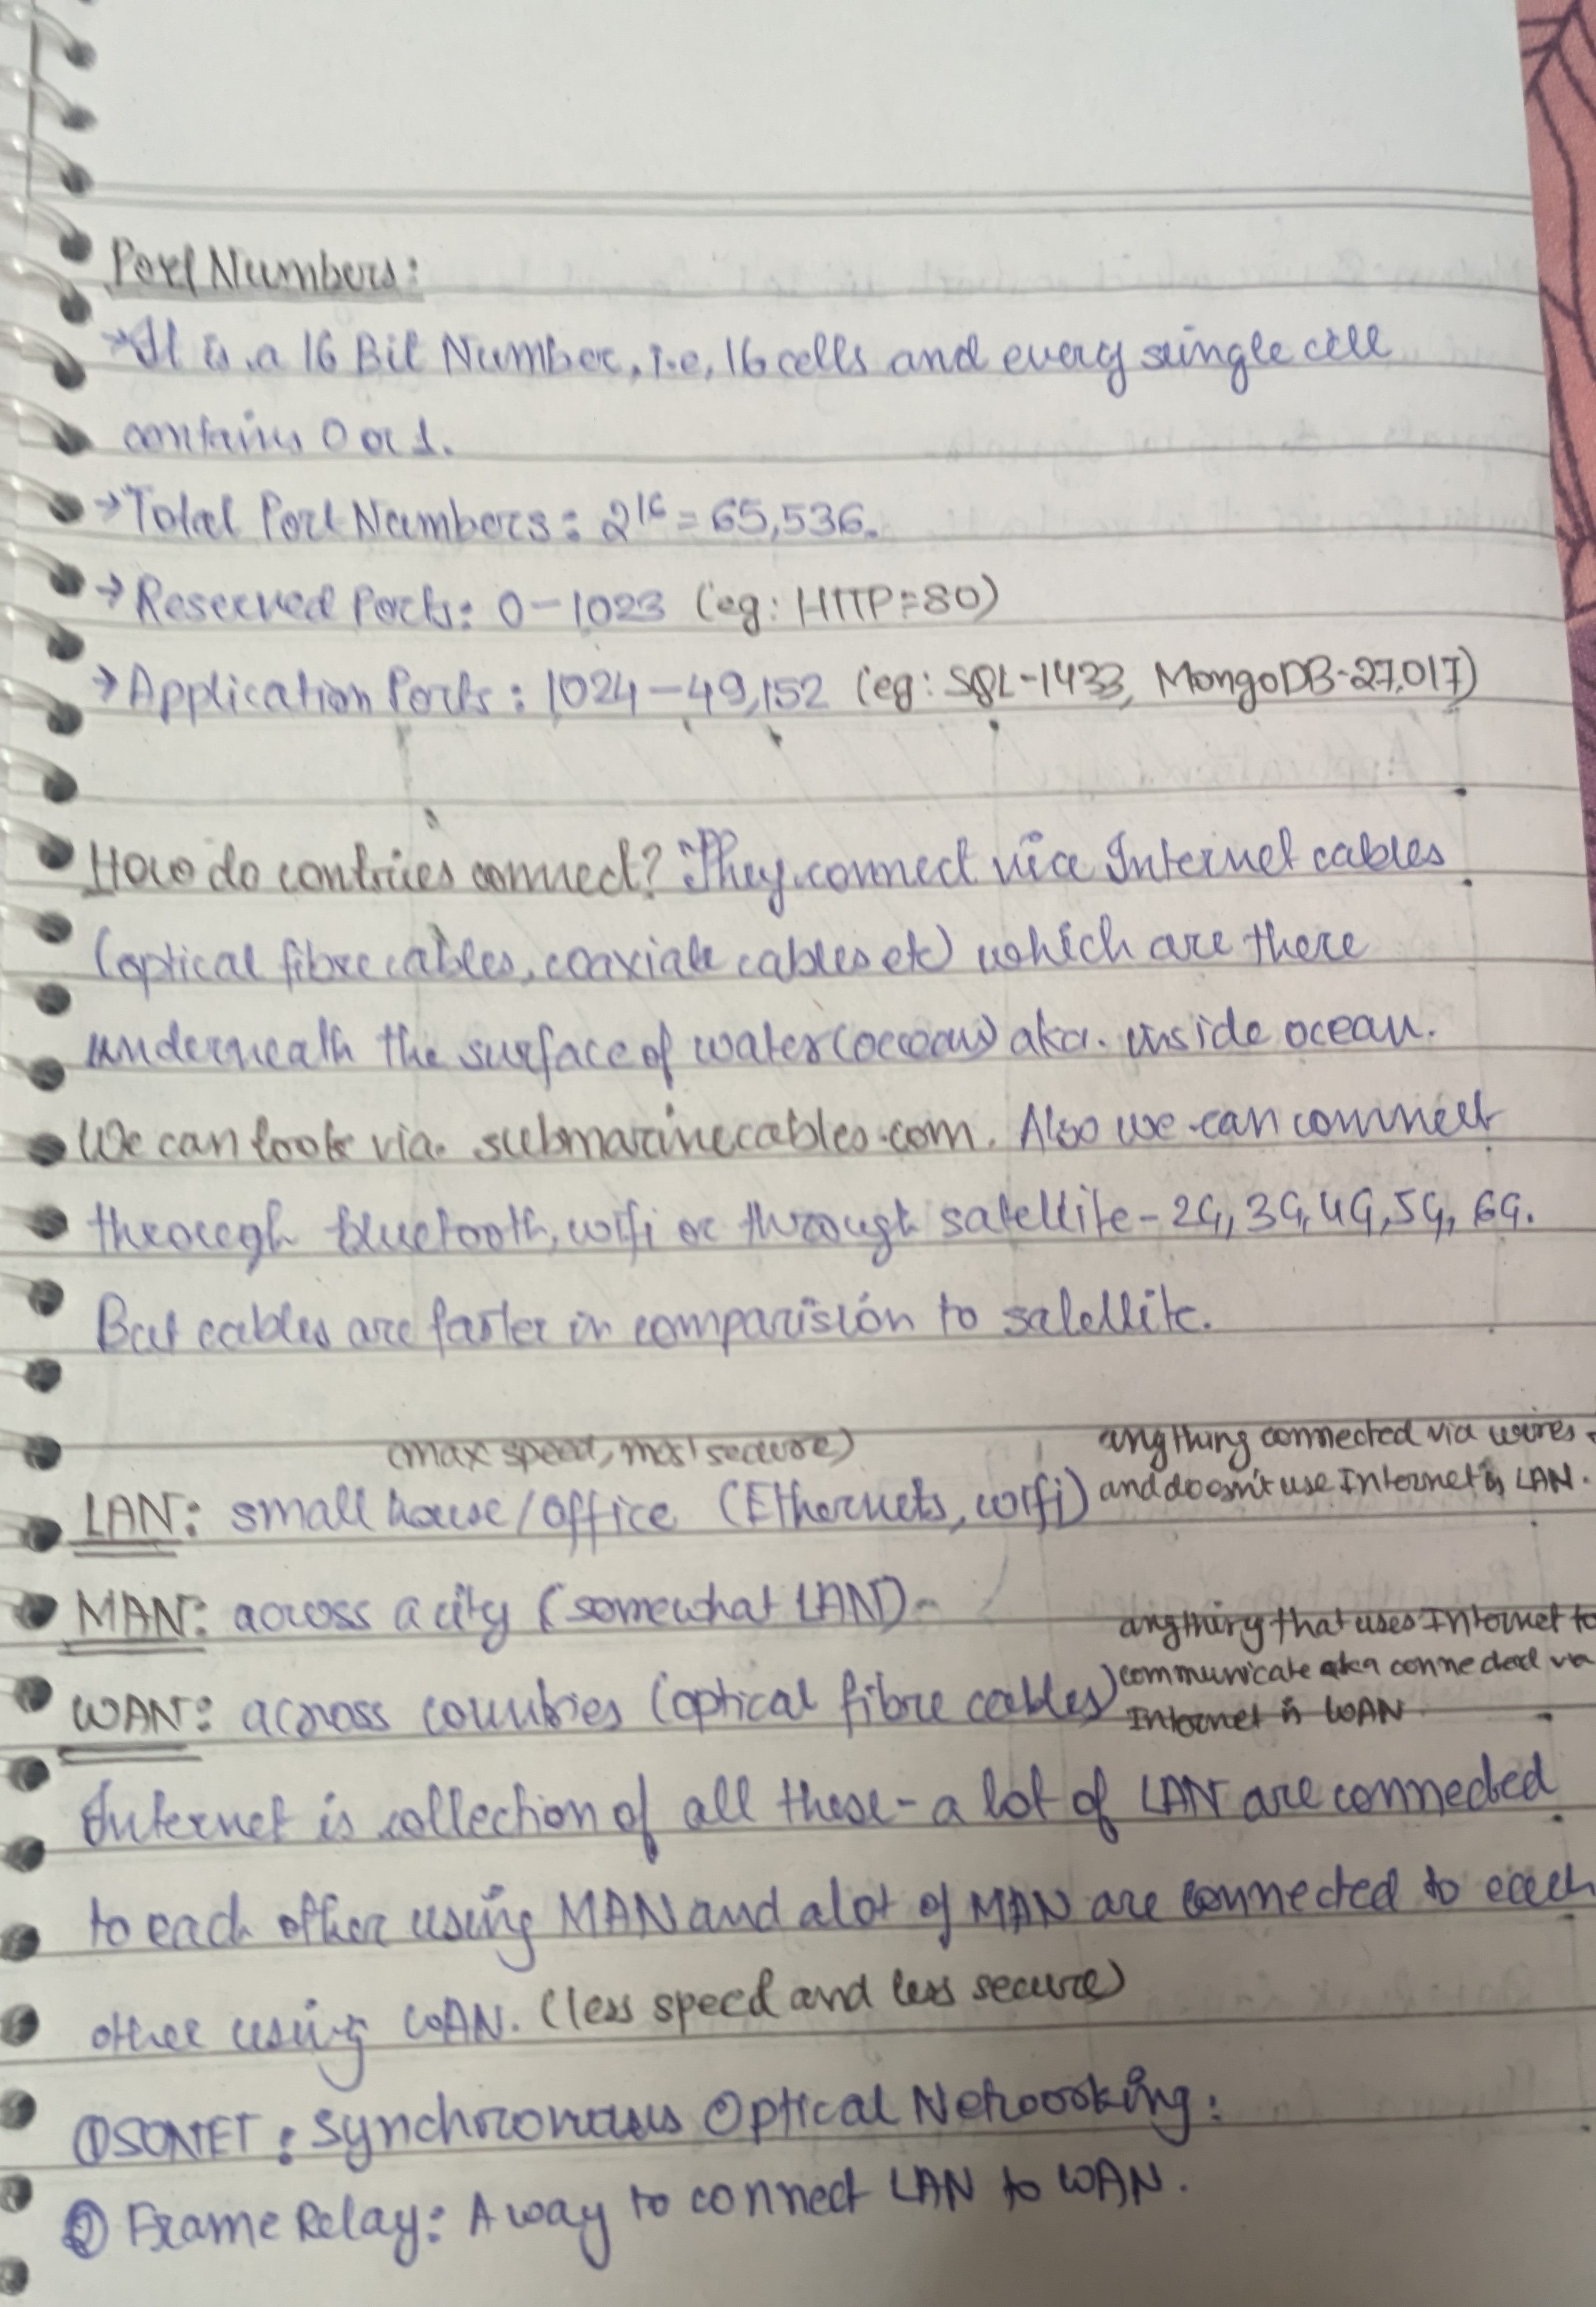 Port Numbers:
→ It is a 16 Bit Number, i.e, 16 cells and every single cell
contains 0 or 1.
→ Total Port Numbers: 2¹⁶ = 65,536.
→ Reserved Ports: 0-1023 (eg: HTTP=80)
→ Application Ports: 1024-49,152 (eg: SQL-1433, MongoDB-27,017)
How do contries connect? They connect via Internet cables
(optical fibre cables, coaxiale cables etc) which are there
underneath the surface of water (ocean) aka. inside ocean.
We can look via. submarinecables.com. Also we can connect
through bluetooth, wifi or through satellite-2G, 3G, 4G, 5G, 6G.
But cables are faster in comparision to satellite.
(max speed, most secure)
anything connected via wires
and doesn't use Internet is LAN.
LAN: small house/office (Ethernets, wifi)
MAN: across a city (somewhat LAN)-
anything that uses Internet to
communicate aka connected via
Internet is WAN
WAN: across countries (optical fibre cables)
Internet is collection of all these - a lot of LAN are connected
to each other using MAN and a lot of MAN are connected to each
other using WAN. (less speed and less secure)
① SONET: Synchronous Optical Networking:
② Frame Relay: A way to connect LAN to WAN.